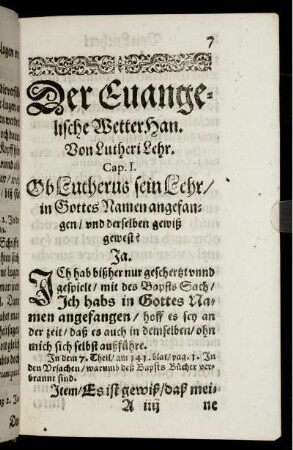 7
Der Euange-
lische WetterHan.
Von Lutheri Lehr.
Cap. I.
Ob Lutherus sein Lehr/
in Gottes Namen angefan-
gen/ vnd derselben gewiß
gewest?
Ja.
ICh hab bißher nur geschertzt vnnd
gespielt/ mit des Bapsts Sach/
Ich habs in Gottes Na-
men angefangen/ hoff es sey an
der zeit/ daß es auch in demselben/ ohn
mich sich selbst außführe.
In dem 7. Theil/ am 141. blat/ pag. 1. In
den Vrsachen/ warumb deß Bapsts Bücher ver-
brannt sind.
Item/ Es ist gewiß/ daß mei-
A iiij ne